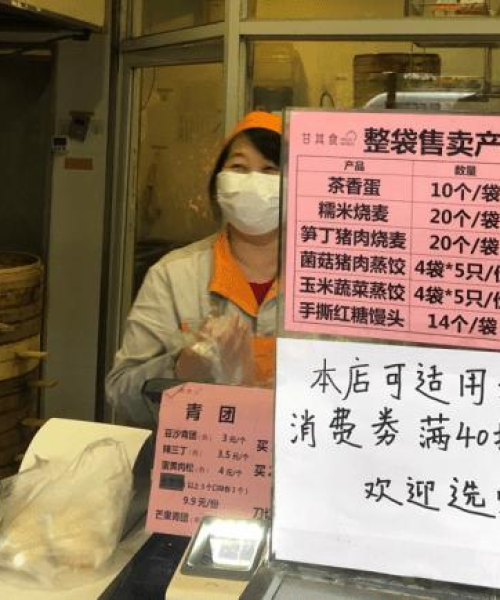 甘其食
整袋售卖产
产品 数量
茶香蛋 10个/袋
糯米烧麦 20个/袋
笋丁猪肉烧麦 20个/袋
菌菇猪肉蒸饺 4袋*5只/
玉米蔬菜蒸饺 4袋*5只/
手撕红糖馒头 14个/袋
本店可适用
消费券 满40
欢迎选
青团
豆沙青团 3元/个 买
辣三丁 3.5元/个
蛋黄肉松 4元/个 买
9.9元/份
芒果青团